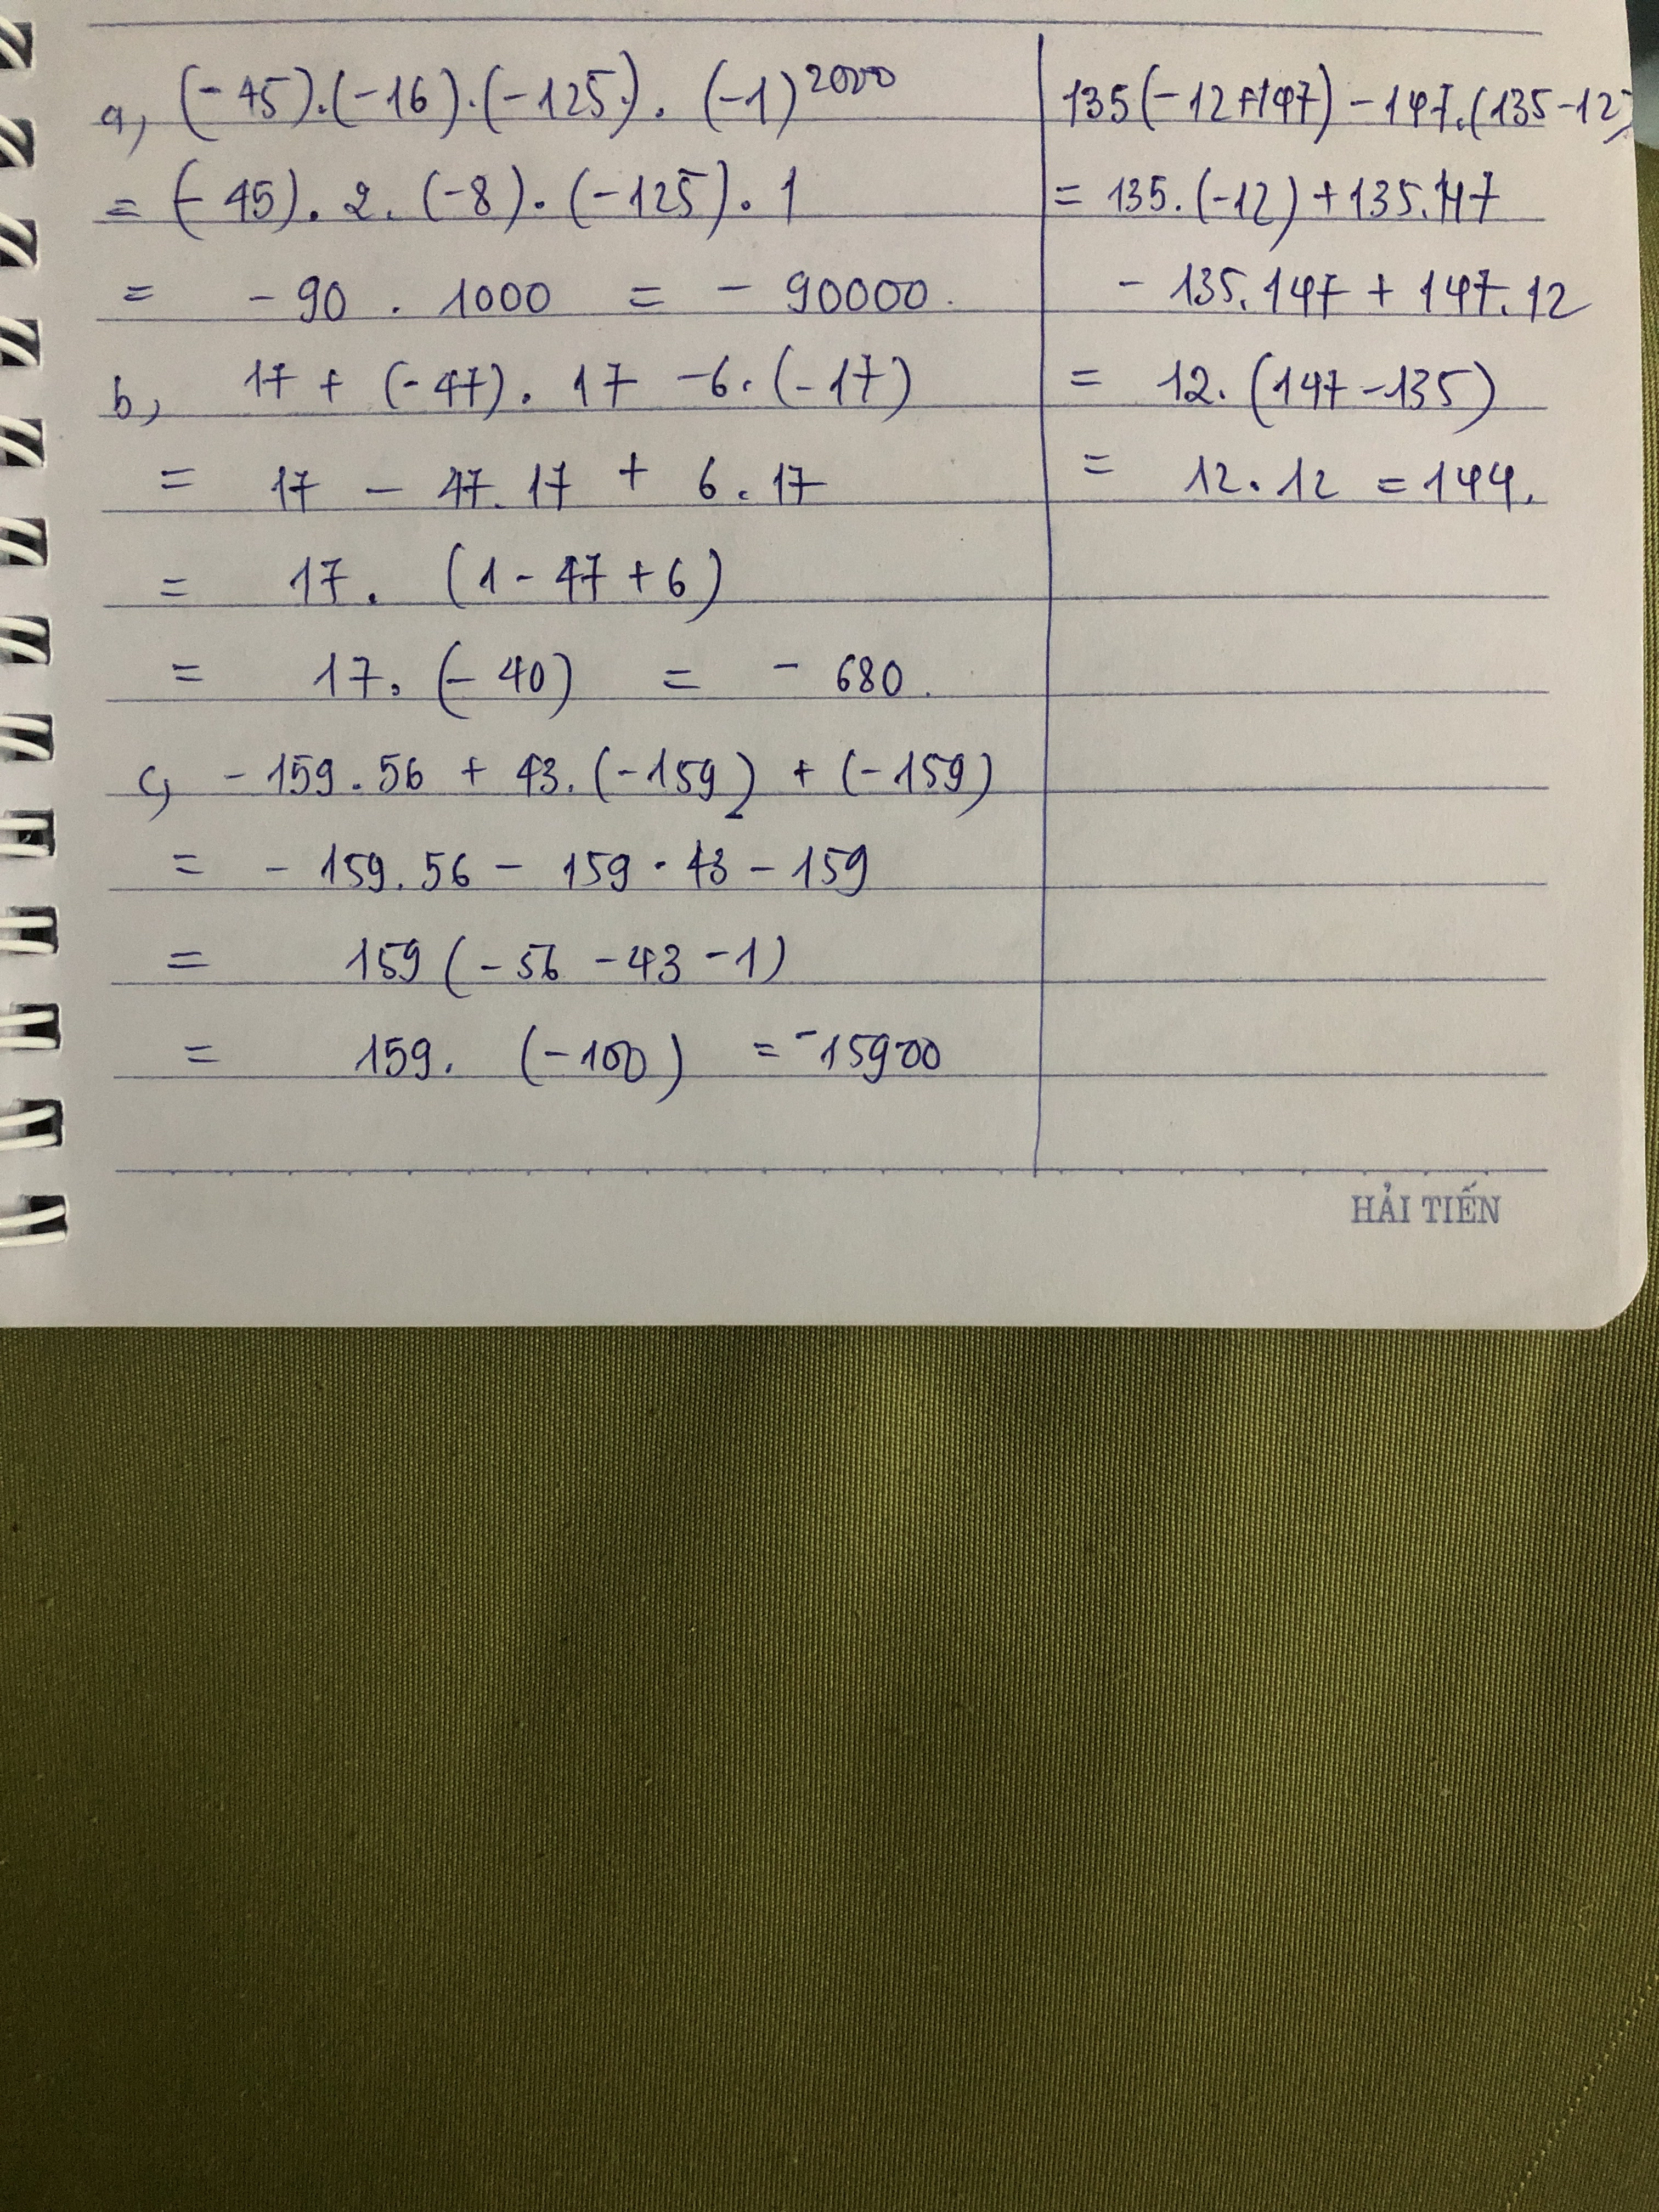 a, (-45).(-16).(-125). (-1)²⁰⁰⁰
= (-45). 2. (-8). (-125). 1
= -90 . 1000 = - 90000.
b, 17 + (-47). 17 -6. (-17)
= 17 - 47.17 + 6.17
= 17. (1 - 47 + 6)
= 17. (-40) = - 680.
c, - 159.56 + 43.(-159) + (-159)
= - 159.56 - 159.43 - 159
= 159 (-56 -43 -1)
= 159. (-100) = -15900
135(-12+147) - 147.(135-12)
= 135.(-12) + 135.147
- 135.147 + 147.12
= 12. (147 -135)
= 12.12 = 144.
HẢI TIẾN